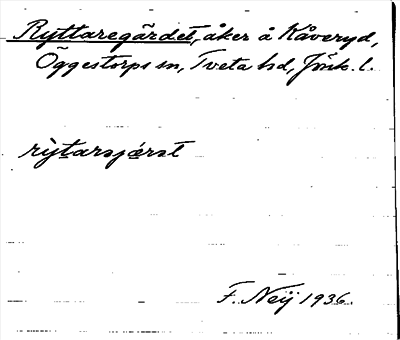 Ryttaregärdet, åker å Kåveryd,
Öggestorps sn, Tveta hd, Jönk. l.
rỳtarsjǽrst
F. Neij 1936.